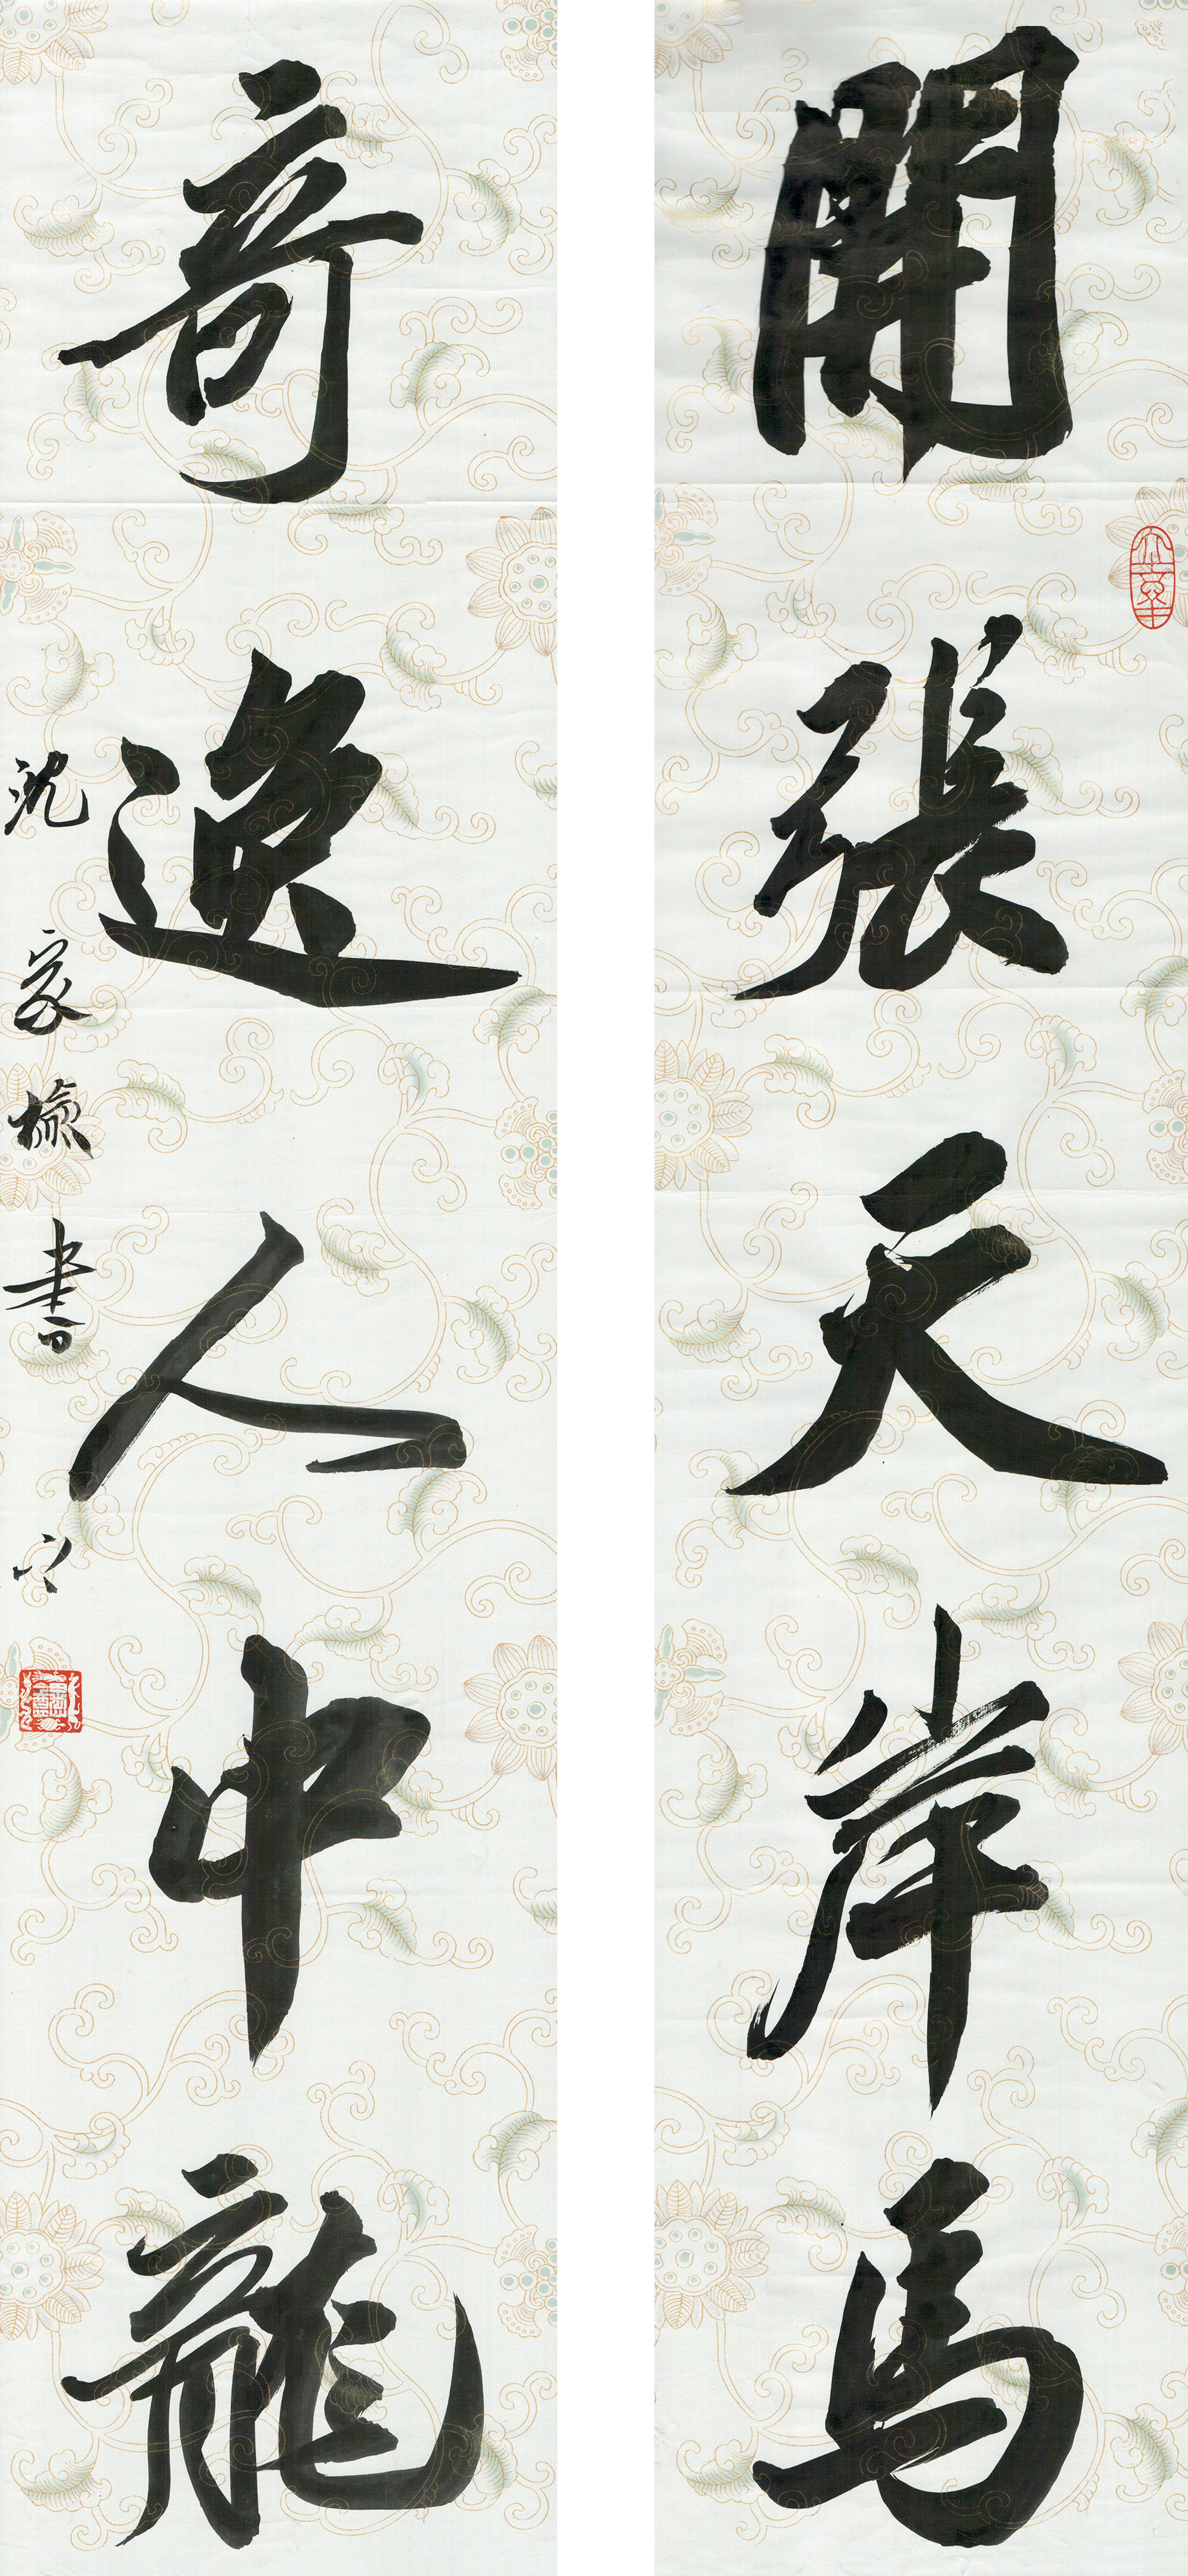 開張天岸馬
奇逸人中龍
沈家榆書